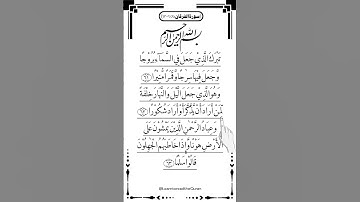 سورة الفرقان
بسم الله الرحمن الرحيم
تَبَٰرَكَ ٱلَّذِي جَعَلَ فِي ٱلسَّمَآءِ بُرُوجًا
وَجَعَلَ فِيهَا سِرَٰجًا وَقَمَرًا مُّنِيرًا ٦١
وَهُوَ ٱلَّذِي جَعَلَ ٱلَّيْلَ وَٱلنَّهَارَ خِلْفَةً
لِّمَنْ أَرَادَ أَن يَذَّكَّرَ أَوْ أَرَادَ شُكُورًا ٦٢
وَعِبَادُ ٱلرَّحْمَٰنِ ٱلَّذِينَ يَمْشُونَ عَلَى
ٱلْأَرْضِ هَوْنًا وَإِذَا خَاطَبَهُمُ ٱلْجَٰهِلُونَ
قَالُوا۟ سَلَٰمًا ٦٣